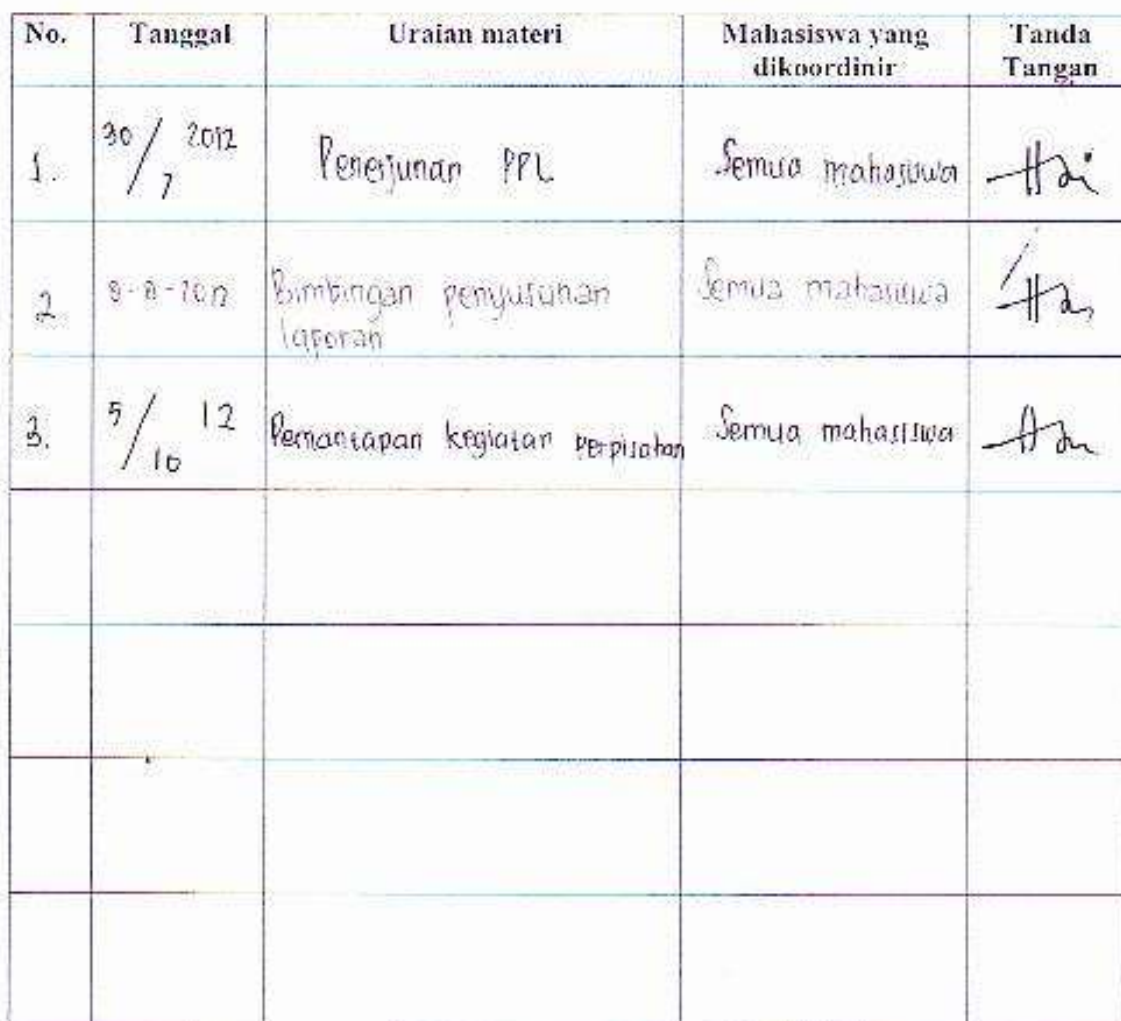 No. Tanggal Uraian materi Mahasiswa yang dikoordinir Tanda Tangan
1. 30/7 2012 Penerjunan PPL Semua mahasiswa
2 8-8-2012 Bimbingan penyusunan laporan Semua mahasiswa
3. 5/10 12 Pemantapan kegiatan perpisahan Semua mahasiswa